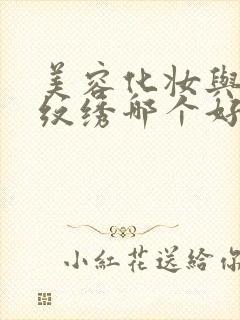 美容化妆與
纹绣那个好
小紅花送給你